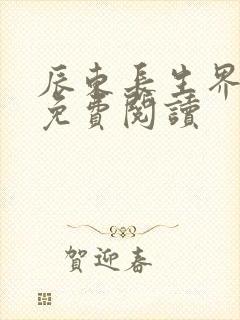 辰東長生界
免費閱讀
賀迎春